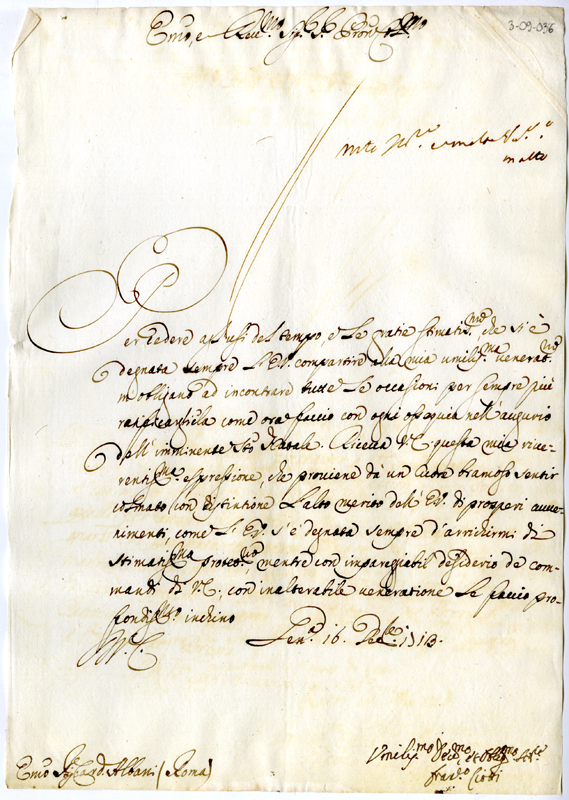 3-09-036
Emo, e Reu.mo Sig.r
molto
Per cedere all'usi del tempo, e le gratie stimatis.me che si è
degnata sempre l'E.V. compartire alla mia umiliss.ma venerat.ne
m'obligano ad incontrare tutte le occasioni per sempre più
come ora faccio con ogni ossequio nell'augurio
dell'imminente S.to Natale. Riceva V.E. questa mia rive-
renti.ma espressione, che proviene da un Cuore bramoso sentir
colmato con distintione l'alto merito dell'E.V. di prosperi avve-
nimenti, come l'E.V. s'è degnata sempre d'arrichirmi di
stimatis.ma protec.ne mentre con impareggiabil desiderio de com-
mandi di V.E. con inalterabile veneratione le faccio pro-
fondiss.o inchino
V.E.
16 Dec.re 1713.
Emo Sig.Card. Albani (Roma)
Umiliss.mo Dev.mo et Obblig.mo Ser.re